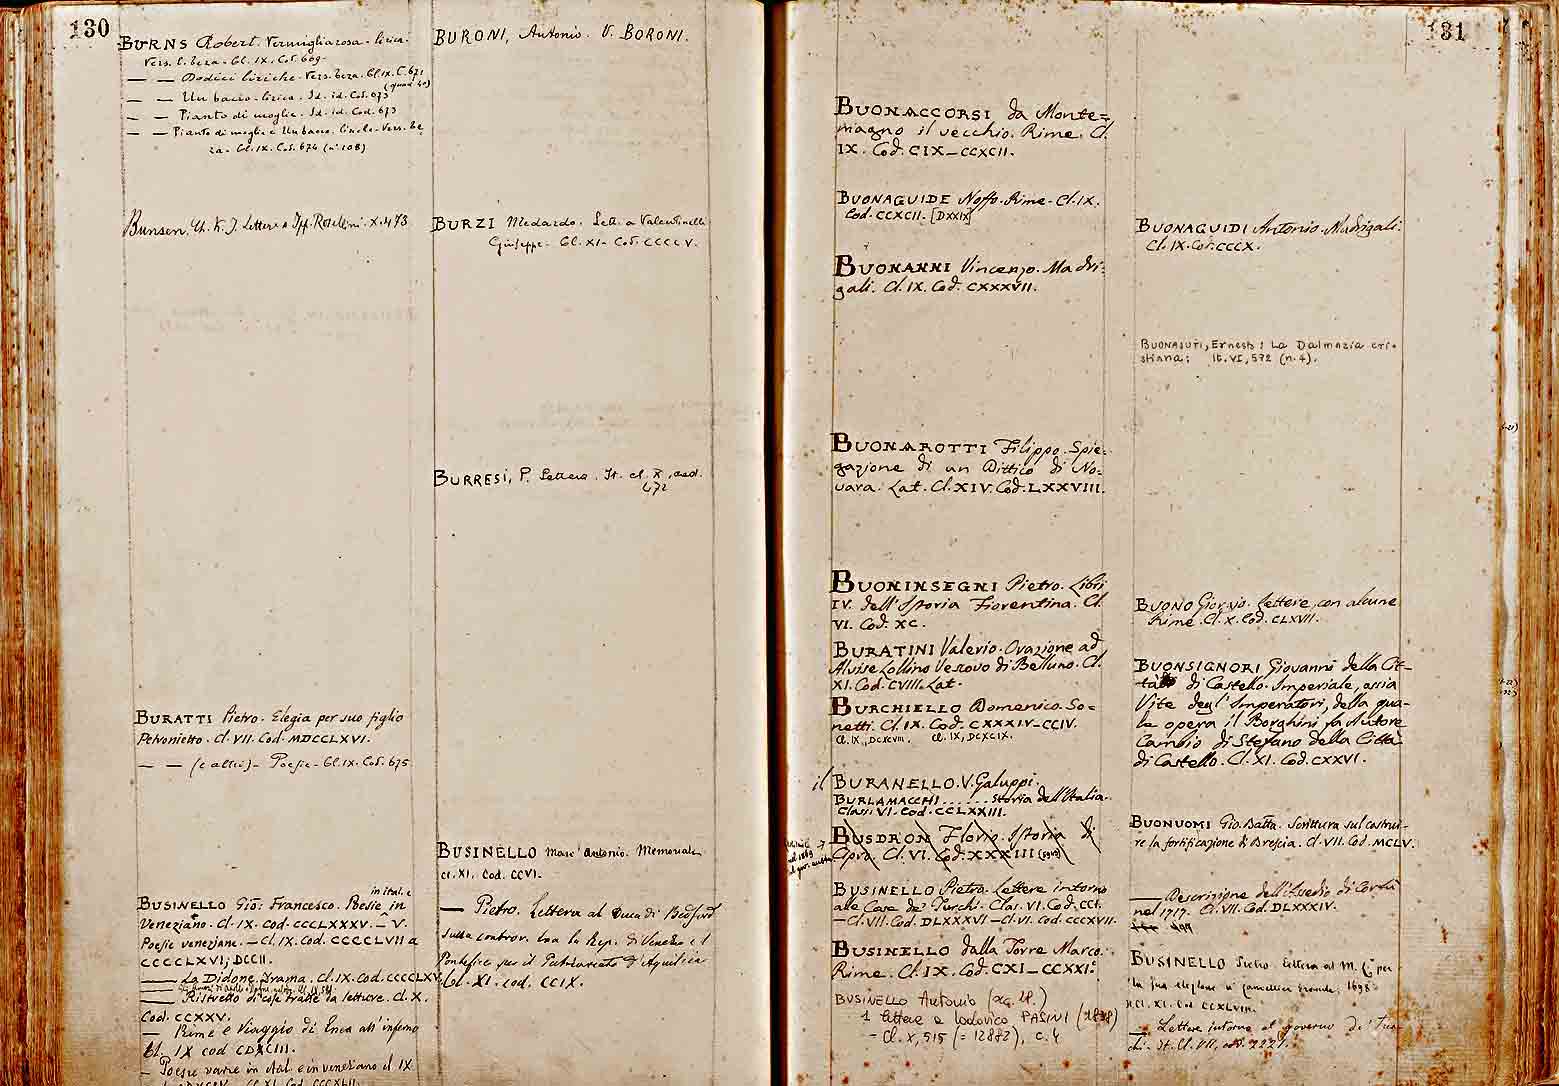 130
BURNS Robert. Vermigliarosa - lirica.
Vers. E. Teza. Cl. IX. Cod. 669.
— — Dodici liriche. Vers. Teza. Cl. IX. C. 671
(quad. 40)
— — Un bacio. lirica. Id. id. Cod. 673
— — Pianto di moglie. Id. id. Cod. 673
— — Pianto di moglie e Un bacio. liriche. Vers. Te
za. Cl. IX. Cod. 674 (n. 108)
Bunsen. Ch. K. J. Lettere a Ipp. Rosellini. X. 473
BURATTI Pietro. Elegia per suo figlio
Petronietto. Cl. VII. Cod. MDCCLXVI.
— — (e altri) - Poesie. Cl. IX. Cod. 675
in ital. e
BUSINELLO Gio: Francesco. Poesie in
Veneziano. Cl. IX. Cod. CCCLXXXV. — V.
Poesie veneziane. — Cl. IX. Cod. CCCCLVII a
CCCCLXVI; DCCII.
— La Didone, Drama. Cl. IX. Cod. CCCCLXV
— Ristretto di cose tratte da letture. Cl. X.
Cod. CCXXV.
— Rime e Viaggio di Enea all'inferno
Cl. IX cod CDXCIII.
— Poesie varie in ital e in veneziano cl. IX
BURONI, Antonio. V. BORONI.
BURZI Medardo. Lett. a Valentinelli
Giuseppe. Cl. XI. Cod. CCCCV.
BURRESI, P. Lettera. It. cl. X, cod.
472
BUSINELLO Marc'Antonio. Memoriale
Cl. XI. Cod. CCVI.
— Pietro. Lettera al Duca di Bedford
sulla controv. tra la Rep. di Venezia e il
Pontefice per il Patriarcato d'Aquileia
Cl. XI. cod. CCIX.
131
BUONACCORSI da Monte=
magno il vecchio. Rime. Cl.
IX. Cod. CIX — CCXCII.
BUONAGUIDE Noffo. Rime. Cl. IX.
Cod. CCXCII. [DXXIX]
BUONANNI Vincenzo. Madri=
gali. Cl. IX. Cod. CXXXVII.
BUONAROTTI Filippo. Spie=
gazione di un Dittico di No=
vara. Lat. Cl. XIV. Cod. LXXVIII.
BUONINSEGNI Pietro. Libri
IV. dell'Istoria Fiorentina. Cl.
VI. Cod. XC.
BURATINI Valerio. Orazione ad
Alvise Lollino Vescovo di Belluno. Cl.
XI. Cod. CVIII. Lat.
BURCHIELLO Domenico. So=
netti. Cl. IX. Cod. CXXXIV — CCIV.
Cl. IX, DCXCVIII. Cl. IX, DCXCIX.
il BURANELLO. V. Galuppi.
BURLAMACCHI ...... Storia dell'Italia.
Class. VI. Cod. CCLXXIII.
BUSDRON Florio. Istoria di
Cipro. Cl. VI. Cod. XXXIII
BUSINELLO Pietro. Lettere intorno
alle Cose de' Turchi. Clas. VI. Cod. CCI.
— Cl. VII. Cod. DLXXXVI — Cl. VI. cod. CCCXVII
BUSINELLO dalla Torre Marco.
Rime. Cl. IX. Cod. CXI — CCXXI.
BUSINELLO Antonio
1 lettera a Lodovico PASINI (1838)
— Cl. X, 515 (= 12872), c. 4
BUONAGUIDI Antonio. Madrigali.
Cl. IX. Cod. CCCX.
BUONAIUTI, Ernesto: La Dalmazia cri-
stiana: It. VI, 572 (n. 4).
BUONO Giorgio. Lettere, con alcune
Rime. Cl. X. Cod. CLXVII.
BUONSIGNORI Giovanni della Cit-
tà di Castello. Imperiale, ossia
Vite degl'Imperatori, della qua-
le opera il Borghini fa Autore
Cambio di Stefano della Città
di Castello. Cl. XI. Cod. CXXVI.
BUONUOMI Gio. Batta. Scrittura sul costrui-
re la fortificazione di Brescia. Cl. VII. Cod. MCLV.
— Descrizione dell'Assedio di Corfù
nel 1717. Cl. VII. Cod. DLXXXIV.
BUSINELLO Pietro. Lettera al M. C. per
la sua elezione a Cancellier Grande. 1698.
Cl. XI. Cod. CCXLVIII.
— Lettere intorno al governo de' Tur-
chi. It. Cl. VII, cod. 2221.